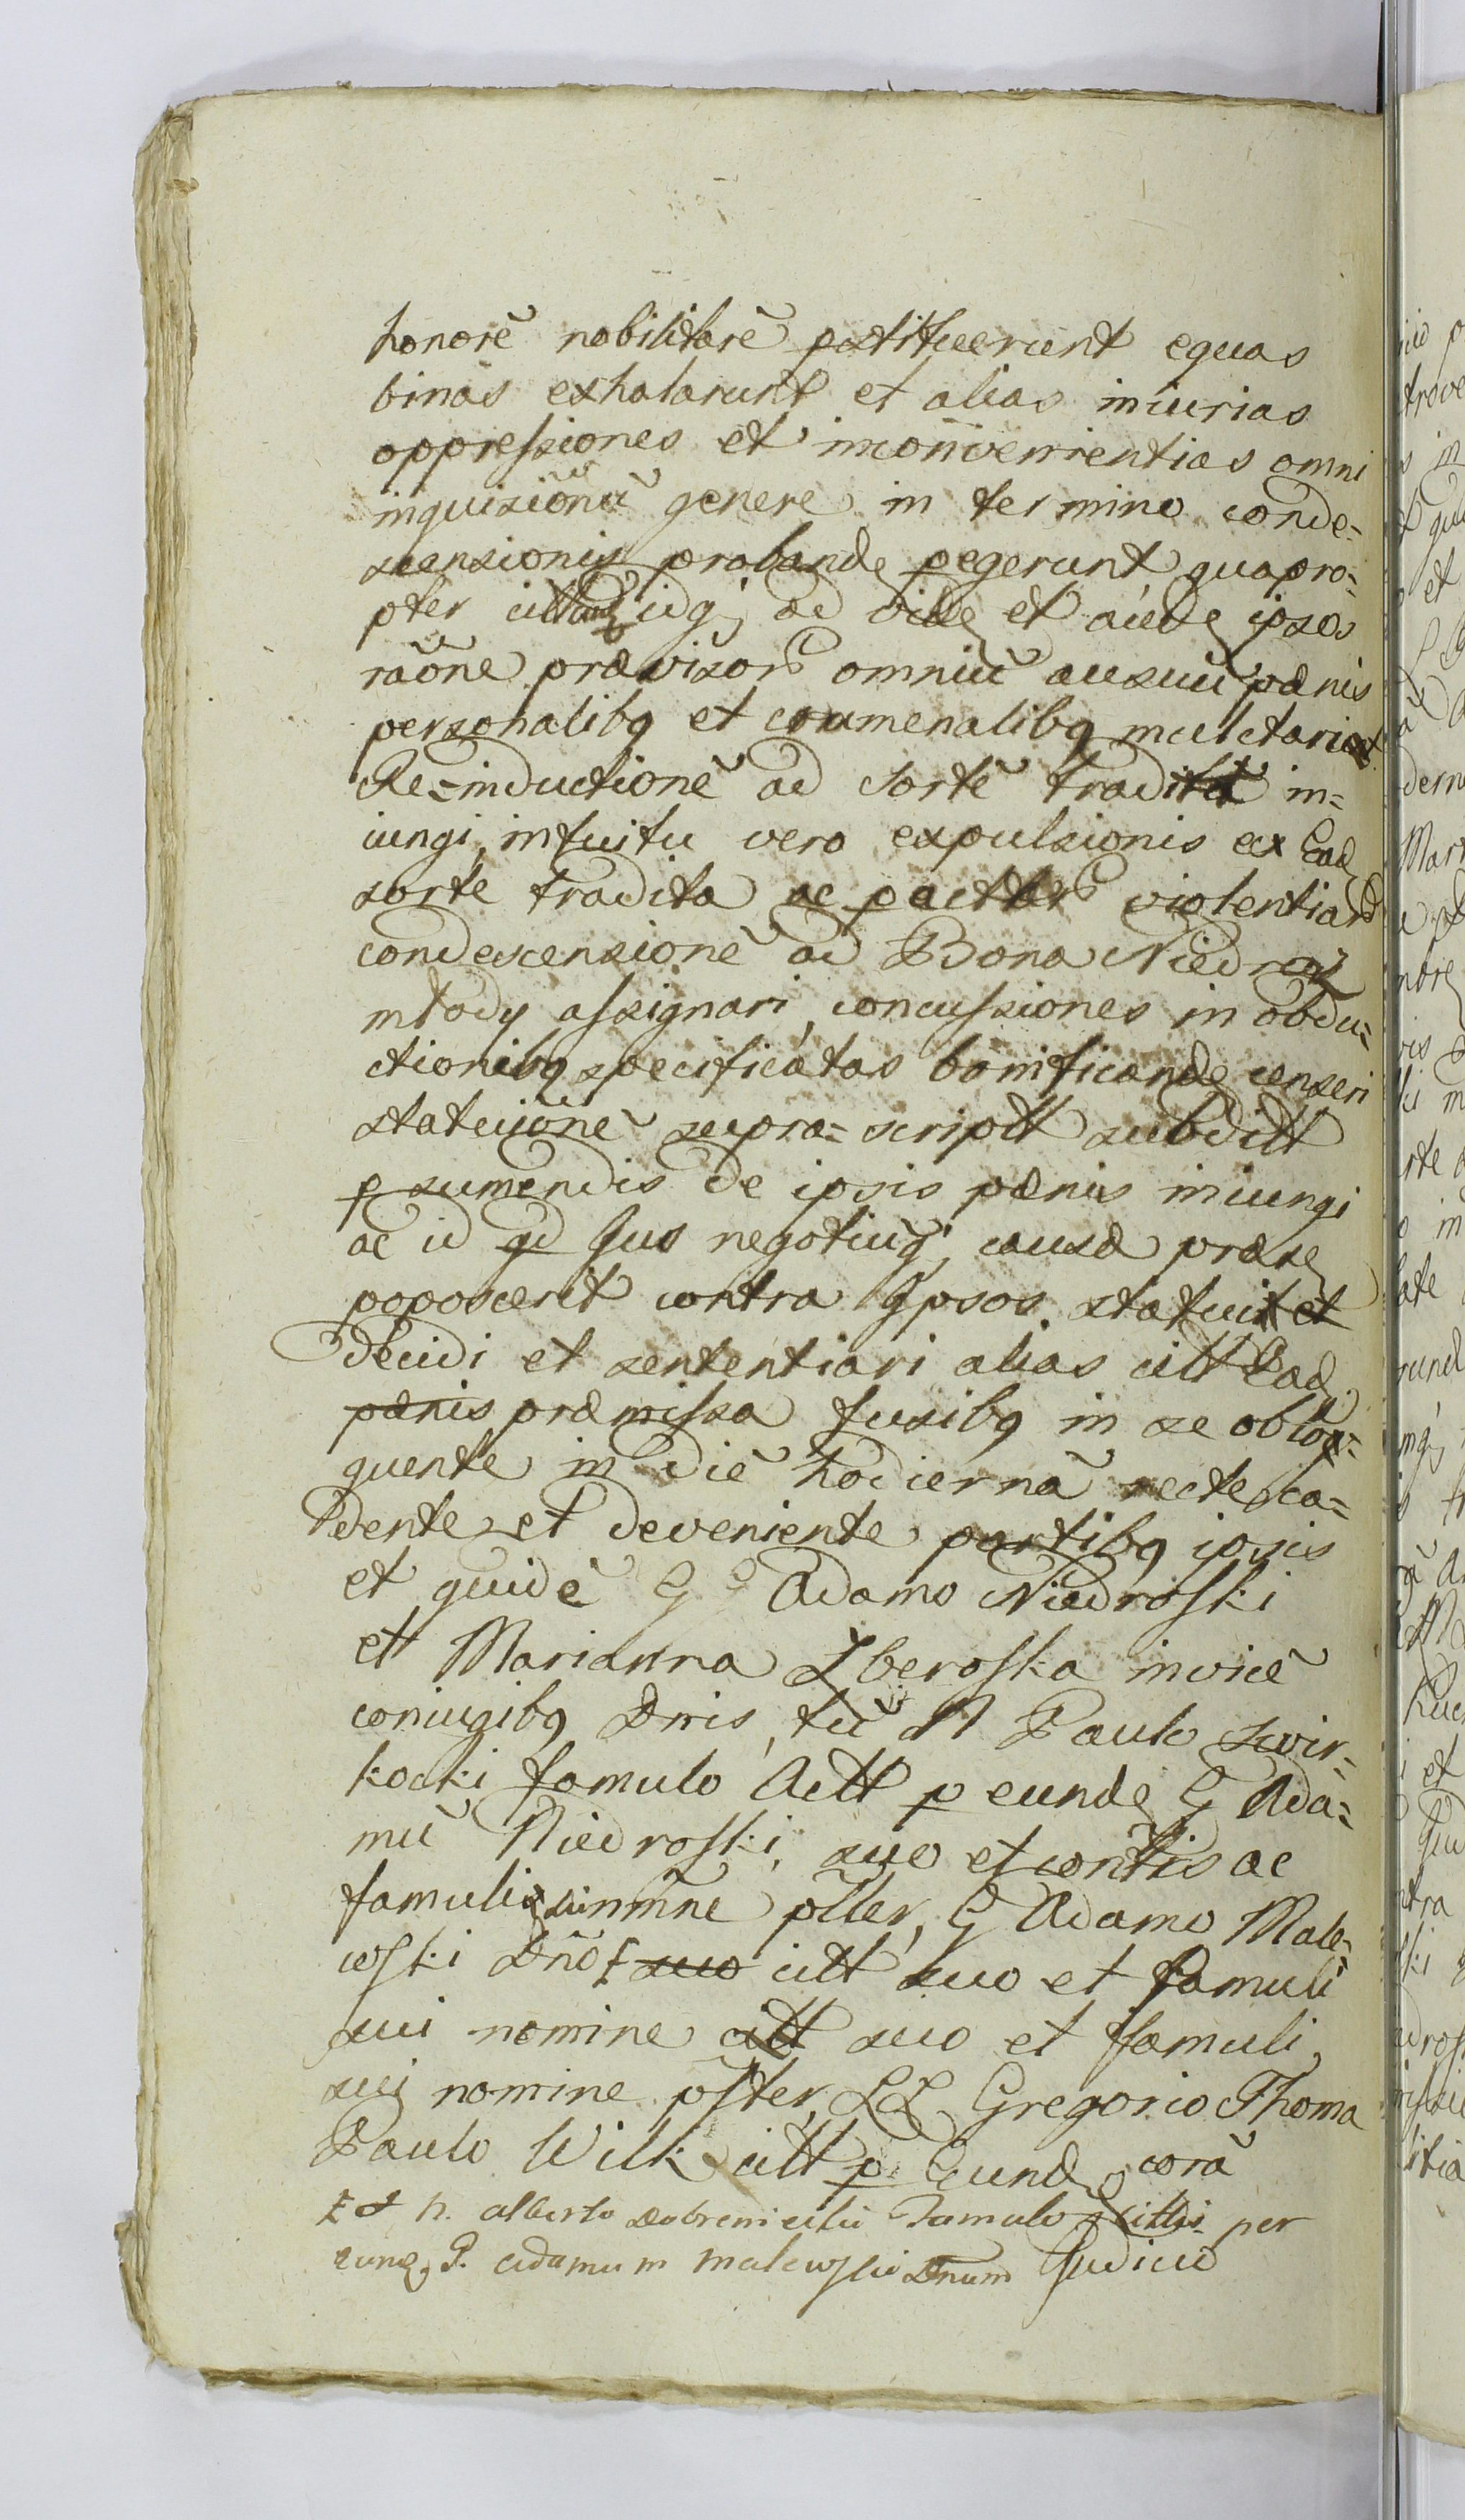 honorē nobilitarē pstituerunt equas
binas exhalarunt et alias iniurias
oppressiones et inconvenientias omni
inquisiōnū genere in termino conde=
scensionis probande pegerunt quapro=
pter idq; ad vide et aude ipsos
raōne prævisor omniū ausuū pænis
personalibq et crumenalibq mulctari et
Re=inductionē ad sortē tradita in=
iungi, intuitu vero expulsionis ex Ead
sorte tradita ac violentiar
condescensionē ad Bona Niedroz
młody assignari, concussiones in obdu=
ctionibq specificatas bonificande censeri
statuiōnē supra=scriptt subditt
p sumendis de ipsis pænis iniungi
ac id qd Jus negotiūq; causæ præse
poposcerit contra Ipsos statui et
decidi et sententiari alias citt Ead
pænis præmissa fusibq in se oblo=
quente in diē hodiernā recte ca=
dente et deveniente partibq ipsis
et quidē G G Adamo Niedroski
et Marianna Zberoska invicē
coniugibq Dnis, tū N Paulo Swir=
kocki famulo Actt p eunde G Ada=
mū Niedroski, suo et contlis ac
famuli sui nmne plter, G Adamo Male=
wski Dnō suo citt suo et famuli
sui nomine citt suo et famuli
sui nomine pster, LL Gregorio Thoma
Paulo Wilk citt p Eund corā
Ŧ & N. Alberto Dobrenicki Famulo citto per
eund G. Adamum Malewski Dnum Judicio